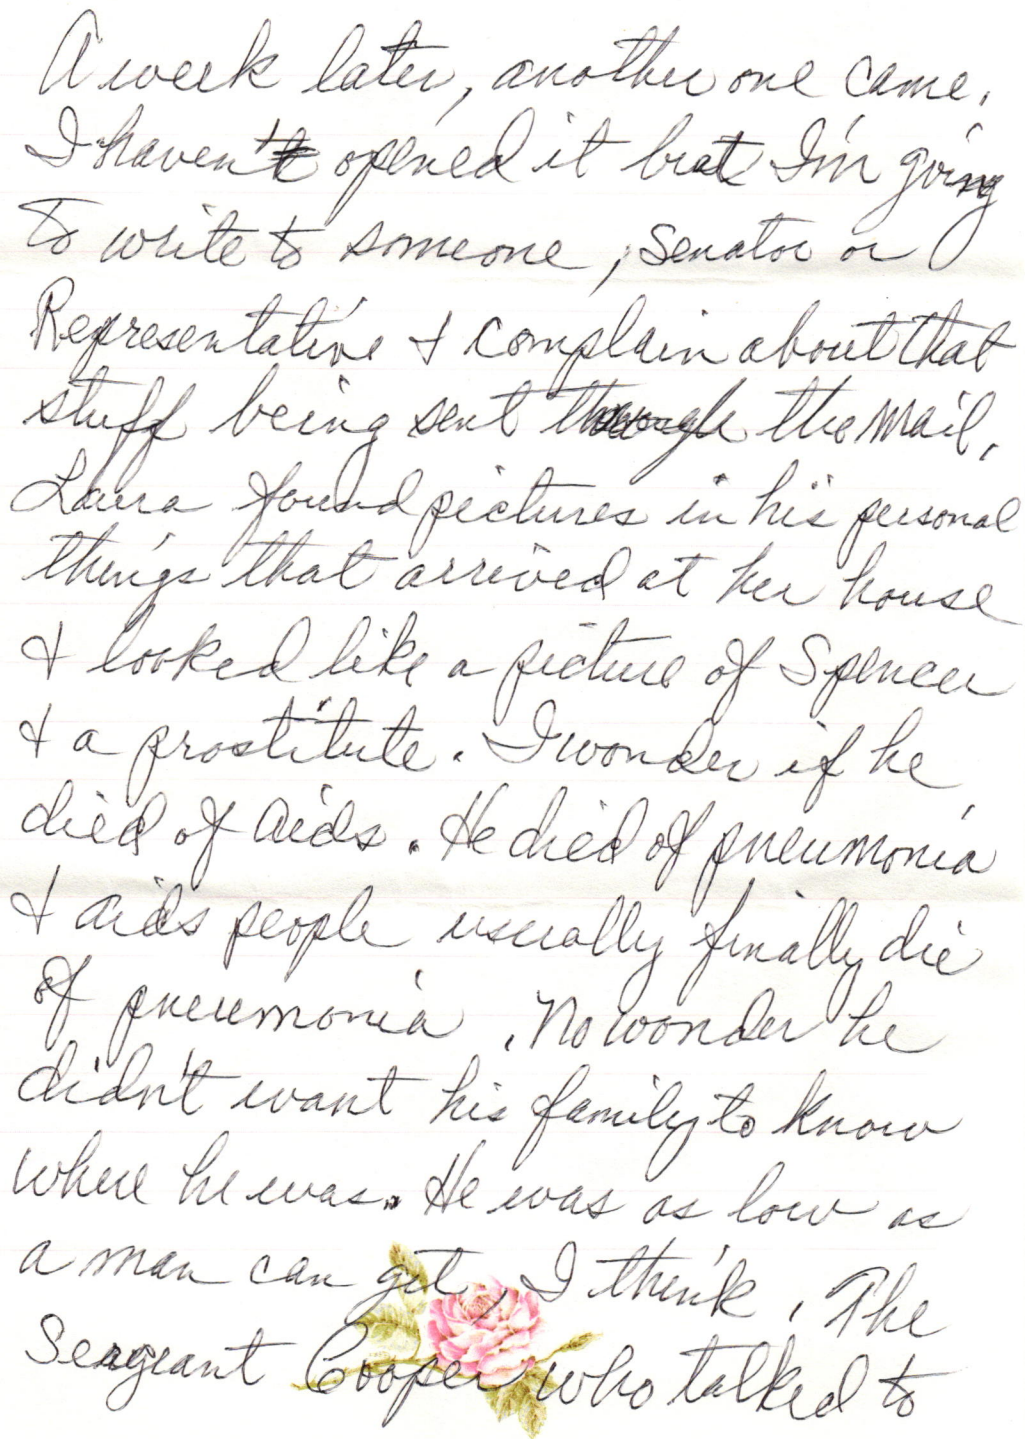 A week later, another one came.
I haven't opened it but I'm going
to write to someone, Senator or
Representative & complain about that
stuff being sent through the mail.
Laura found pictures in his personal
things that arrived at her house
& looked like a picture of Spencer
& a prostitute. I wonder if he
died of aids. He died of pneumonia
& aids people usually finally die
of pneumonia. No wonder he
didn't want his family to know
where he was. He was as low as
a man can get, I think. The
Seargeant Cooper who talked to